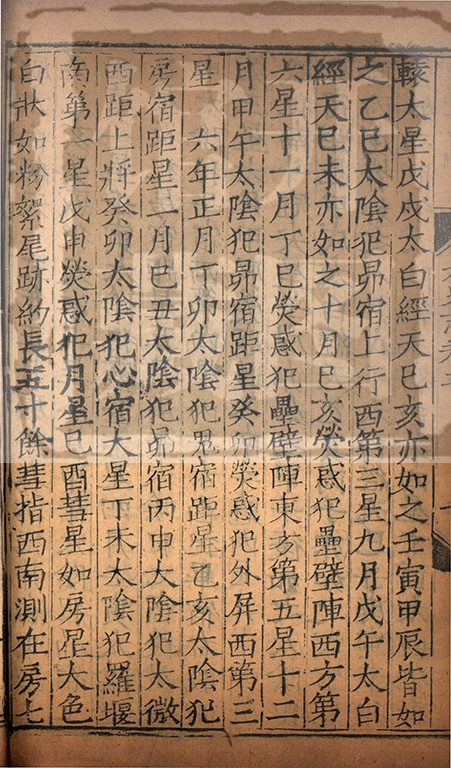 轅大星戊戌太白經天已亥亦如之壬寅甲辰皆如
之乙巳太陰犯昴宿上行西第三星九月戊午太白
經天已未亦如之十月巳亥熒惑犯壘壁陣西方第
六星十一月丁巳熒惑犯壘壁陣東方第五星十二
月甲午太陰犯昴宿距星癸卯熒惑犯外屏西第三
星 六年正月丁卯太陰犯鬼宿距星乙亥太陰犯
房宿距星二月巳丑太陰犯昴宿丙申太陰犯太微
西距上將癸卯太陰犯心宿大星丁未太陰犯羅堰
南第一星戊申熒惑犯月星巳酉彗星如房星大色
白狀如粉絮尾跡約長五寸餘彗指西南測在房七